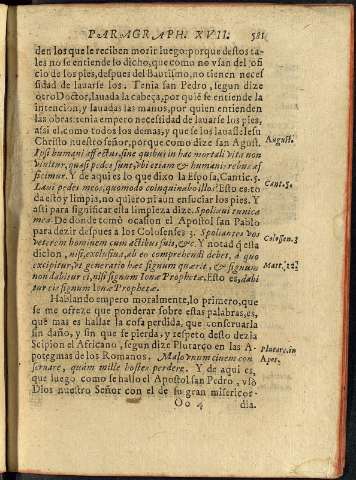 PARAGRAPH. XVII. 581
den los que le reciben morir luego: porque destos ta-
les no se entiende lo dicho, que como no vsan del ofi
cio de los pies, despues del Bautismo, no tienen neces
sidad de lauarse los. Tenia san Pedro, segun dize
otro Doctor, lauada la cabeça, por quiē se entiende la
intencion, y lauadas las manos, por quien entienden
las obras: tenia empero necesidad de lauarse los pies,
assi el como todos los demas, y que se los lauasse Iesu
Christo nuestro señor, porque como dize san Agust.
August.
Ipsi humani affectus, sine quibus in hac mortali vita non
viuitur, quasi pedes sunt, vbi etiam & humanis rebus af
ficimur. Y de aqui es lo que dixo la Esposa, Cantic. 5.
Cant. 5.
Laui pedes meos, quomodo coinquinabo illos? Esto es: to
da estoy limpia, no quiero ni aun ensuciar los pies. Y
assi para significar esta limpieza dize. Spoliaui tunica
mea. De donde tomò ocasion el Apostol san Pablo
para dezir despues a los Colosenses 3. Spoliantes vos
Colossen. 3
veterem hominem cum actibus suis, &c. Y notad q̃ esta
dicion, nisi, exclusiua, ab eo comprehendi debet, à quo
excipitur, vt generatio hæc signum quærit, & signum
Matt. 12.
non dabitur ei, nisi signum Ionæ Prophetæ. Esto es, dabi
tur eis signum Ionæ Prophetæ.
Hablando empero moralmente, lo primero, que
se me ofrece que ponderar sobre estas palabras, es,
que mas es hallar la cosa perdida, que conseruarla
sin daño, y sin que se pierda, y respeto desto dezia
Scipion el Africano, segun dize Plutarco en las A-
Plutarc. in
potegmas de los Romanos. Malo vnum ciuem con
Apot.
seruare, quàm mille hostes perdere. Y de aqui es,
que luego como se hallo el Apostol san Pedro, vsò
Dios nuestro Señor con el de su gran misericor-
Oo 4 dia.